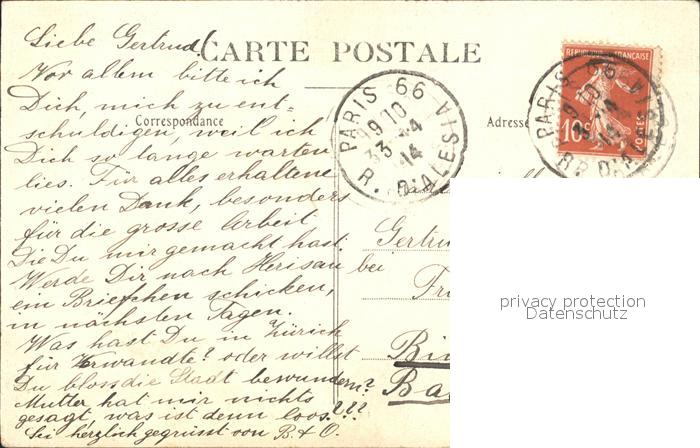 CARTE POSTALE
Correspondance
Adresse
Liebe Gertrud!
Vor allem bitte ich
Dich, mich zu ent=
schuldigen, weil ich
Dich so lange warten
lies. Für alles erhaltene
vielen Dank, besonders
für die grosse Arbeit
Die Du mir gemacht hast.
Werde Dir nach Herisau bei
ein Briefchen schicken,
in nächsten Tagen.
Was hast Du in Zürich
für Verwandte? oder willst
Du bloss die Stadt bewundern?
Mutter hat mir nichts
gesagt, was ist denn loos???
Sei herzlich gegrüsst von B. & O.
PARIS 66
19 10
14
R. D'ALESIA
REPUBLIQUE FRANÇAISE
10c
POSTES
PARIS 66
R. D'ALESIA
Gertru
Fr
Bi
Ba
privacy protection
Datenschutz